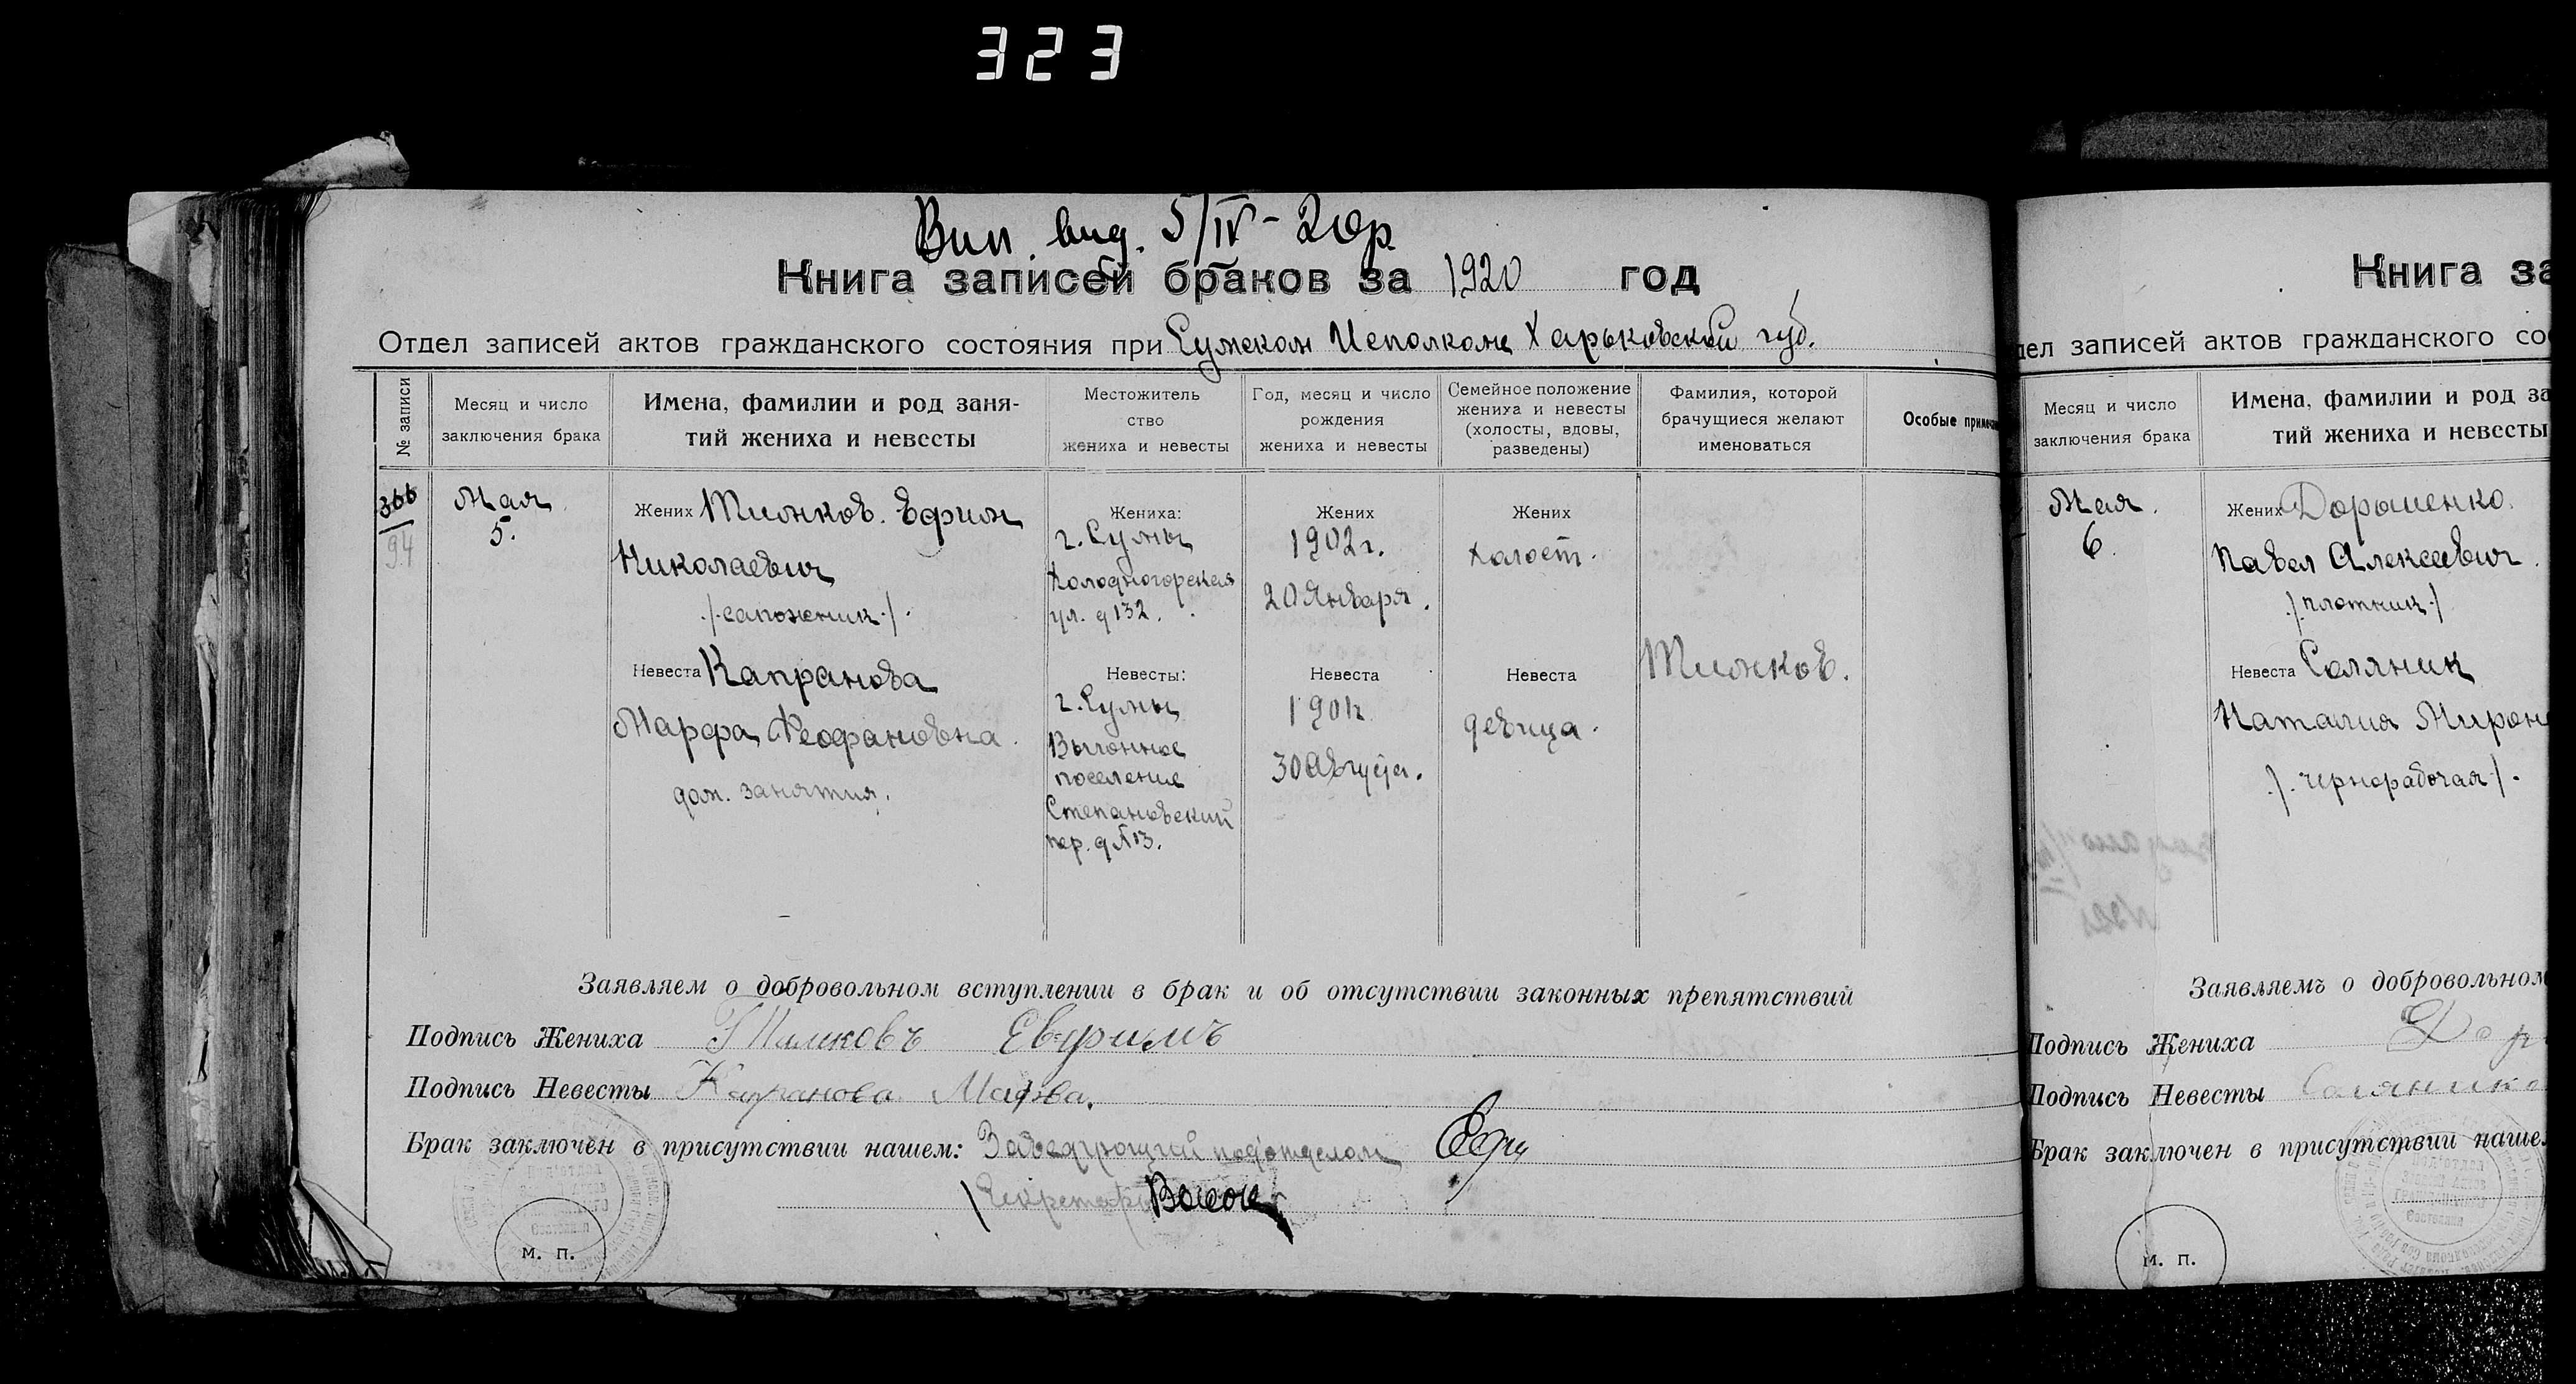 323
Вип. вид. 5/IV - 20р.
Книга записей браков за 1920 год
Отдел записей актов гражданского состояния при Сумском Исполкоме Харьковской губ.
№ записи
Месяц и число
заключения брака
Имена, фамилии и род заня-
тий жениха и невесты
Местожитель
ство
жениха и невесты
Год, месяц и число
рождения
жениха и невесты
Семейное положение
жениха и невесты
(холосты, вдовы,
разведены)
Фамилия, которой
брачущиеся желают
именоваться
Особые примеча
366
94
Мая
5.
Жених Тимков. Ефим
Николаевич
/сапожник/.
Невеста Капранова
Марфа Феофановна.
дом. занятия.
Жениха:
г. Сумы
Холодногорская
ул. д 132.
Невесты:
г. Сумы
Выгонное
поселение
Степановский
пер. д №13.
Жених
1902 г.
20 Января.
Невеста
1901г.
30 Августа.
Жених
холост.
Невеста
девица.
Тимков.
Заявляем о добровольном вступлении в брак и об отсутствии законных препятствий
Подпись Жениха Тимковъ Евфимъ
Подпись Невесты Капранова Марфа.
Брак заключен в присутствии нашем: Заведующий подотделом
Секретарь
м. п.
Книга за
дел записей актов гражданского со
Месяц и число
заключения брака
Имена, фамилии и род за
тий жениха и невесты
Мая.
6.
Жених Дорошенко.
Павел Алексеевич.
/плотник/
Невеста Соляник
Наталия Мирон
/чернорабочая/.
Заявляемъ о добровольном
Подпись Жениха Дор
Подпись Невесты Соляник
Брак заключен в присутствии наше
м. п.